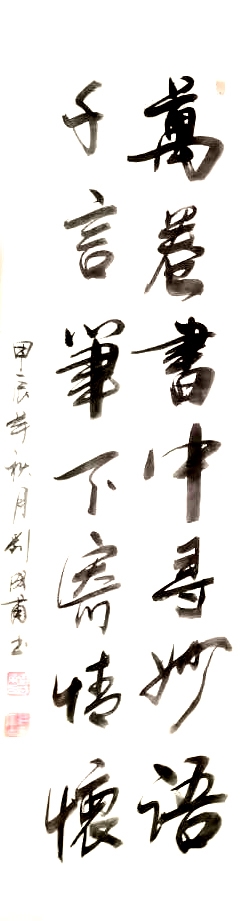 萬卷書中尋妙語
千言筆下寫情懷
甲辰年秋月劉國甫书